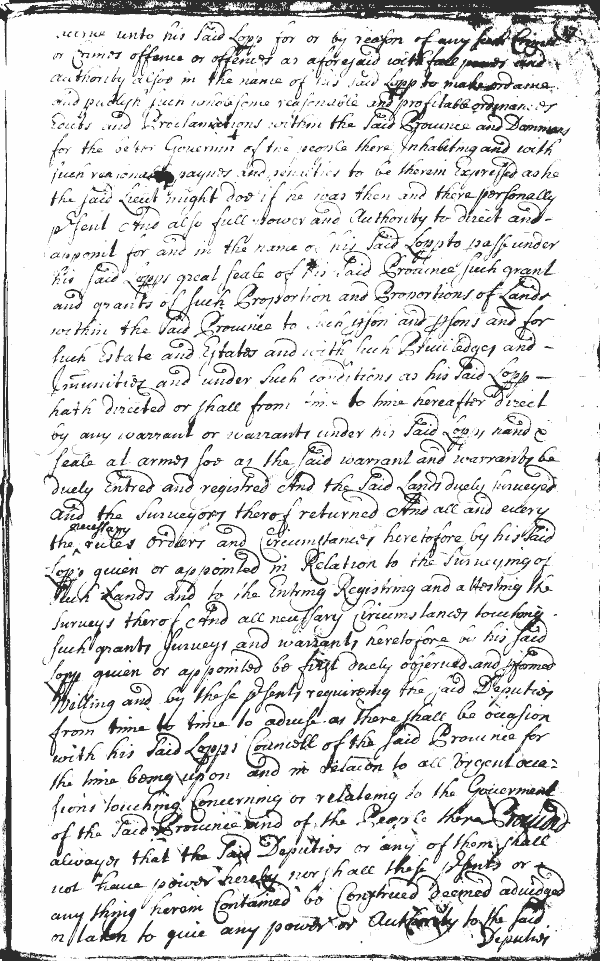 unto his Said Lopp for or by reason of any such Crime
or Crimes offence or offences as aforesaid with full power and
authority alsoe in the name of his Said Lopp to make ordaine
and publish such wholesome reasonable and profitable ordinances
Edicts and Proclamations within the Said Province and Dominions
for the better Governm of the people there Inhabiting and with
such reasonable paynes and penalties to be therein Expressed as he
the said Lieut might doe if he was then and there personally
psent And also full power and Authority to direct and -
appoint for and in the name of his Said Lopp to passe under
his Said Lopps great seale of his Said Province such grant
and grants of such Proportion and Proportions of Lands
within the Said Province to such pson and psons and for
such Estate and Estates and with such Priviledges and -
Immunities and under such conditions as his Said Lopp -
hath directed or shall from time to time hereafter direct
by any warrant or warrants under his Said Lopps hand &
seale at armes soe as the Said warrant and warrants be
duely Entred and registred And the Said Lands duely surveyed
And the Surveyors thereof returned And all and every
necessary
the rules orders and Circumstances heretofore by his Said
Lopp given or appointed in Relation to the Surveying of
such Lands and to the Entring Registring and attesting the
surveys thereof And all necessary Circumstances touching
such grants Surveys and warrants heretofore by his Said
Lopp given or appointed be first duely observed and pformed
Willing and by these psents requireing the Said Deputies
from time to time to advise as there shall be ocasion
with his Said Lopps Councell of the Said Province for
the time being upon and in relacon to all Urgent occa=
sions touching Concerning or relateing to the Goverment
of the Said Province and of the People there Provided
alwayes that the Said Deputies or any of them shall
not have power hereby nor shall these psents or
any thing herein Contained be Construed deemed adiudged
or taken to give any power or Authority to the Said
Deputies